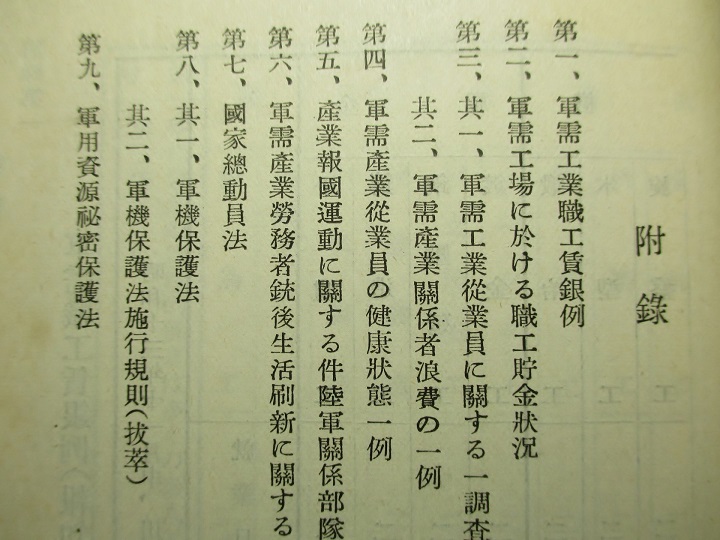 附錄
第一、軍需工業職工賃銀例
第二、軍需工場に於ける職工貯金狀況
第三、其一、軍需工業從業員に關する一調査
其二、軍需產業關係者浪費の一例
第四、軍需產業從業員の健康狀態一例
第五、產業報國運動に關する件陸軍關係部隊
第六、軍需產業勞務者銃後生活刷新に關する
第七、國家總動員法
第八、其一、軍機保護法
其二、軍機保護法施行規則(拔萃)
第九、軍用資源祕密保護法